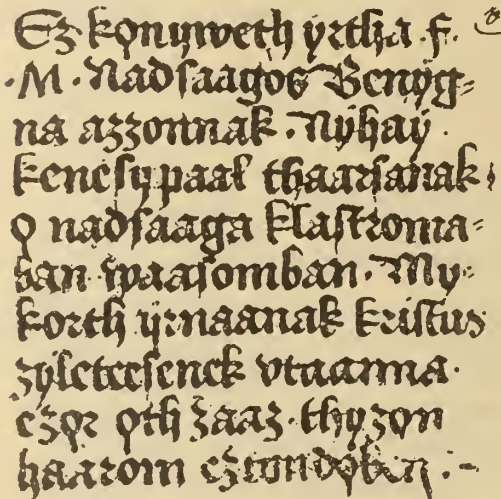 Ez kqnyweth ÿrtha .f.
.M. Nadsaagos Benÿg=
na azzonnak. Nÿhaÿ.
kenesy paal thaarsanak:
q nadsaaga klastroma=
ban waasomban. My=
korth ÿrnaanak kristus
zÿleteesenek vtaanna.
ezqr qth zaaz. thyzon
haarom eztendqben .-